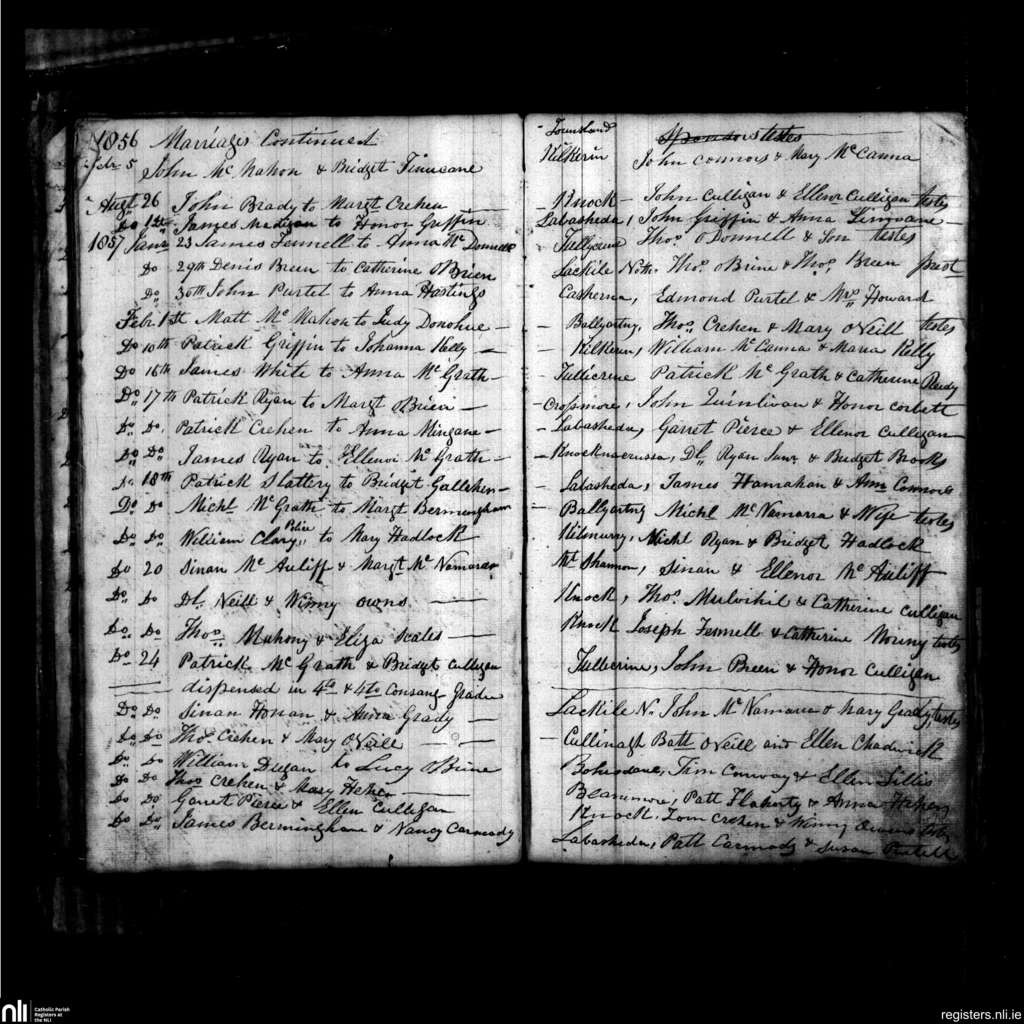 1856 Marriages Continued
Febr. 5 John Mc Mahon & Bridget Finucane
Augt 26 John Brady to Margt Crehen
Do 1st James Madigan to Honor Griffin
1857 Janr 23 James Fennell to Anna Mc Donnell
Do 29th Denis Breen to Catherine O'Brien
Do 30th John Purtel to Anna Hastings
Febr. 1st Matt Mc Mahon to Judy Donohue
Do 10th Patrick Griffin to Johanna Kelly
Do 16th James White to Anna Mc Grath
Do 17th Patrick Ryan to Margt O'Brien
Do Do, Patrick Crehen to Anna Mingane
Do Do James Ryan to Ellenor Mc Grath
Do 18th Patrick Slattery to Bridget Gallehen
Do Do Michl Mc Grath to Margt Bermengham
Police
Do Do William Clary to Mary Hadlock
Do 20 Sinan Mc Auliff & Margt Mc Namara
Do Do Dl. Neill & Winny owns
Do Do Thos. Mahony & Eliza Scales
Do 24 Patrick Mc Grath & Bridget Culligan
dispensed in 4to & 4to Consang Gradu
Do Do Sinan Honan & Anna Grady
Do Do Thos Crehen & Mary O'Neill
Do Do William Dugan to Lucy O'Brine
Do Do Thos Crehen & Mary Haher
Do Do Garret Pierce & Ellen Culligan
Do Do James Bermingham & Nancy Carmody
Townland Sponsors testes
Kilkerin John Connors & Mary Mc Canna
Knock John Culligan & Ellenor Culligan testes
Labasheda, John Griffin & Anna
Tullycrine Thos. O'Donnell & Son testes
Lackile North Thos. O'Brine & Thos. Breen
Casherna, Edmond Purtel & Mrs Howard
Ballyartny, Thos. Crehen & Mary O'Neill testes
Kilkerin, William Mc Canna & Maria Kelly
Tullicrine Patrick Mc Grath & Catherine Reidy
Crossmore, John Quinlivan & Honor Corbett
Labasheda, Garret Pierce & Ellenor Culligan
Knocknacrussa, Dl. Ryan Junr & Bridget Brooks
Labasheda, James Hanrahan & Ann Connors
Ballyartny Michl Mc Namarra & Wife testes
Kilmurry, Michl Ryan & Bridget Hadlock
Mt Shannon, Sinan & Ellenor Mc Auliff
Knock, Thos. Mulvihil & Catherine Culligan
Knock Joseph Fennell & Catherine testes
Tullecrine, John Breen & Honor Culligan
Lackile N. John Mc Namara & Mary Grady testes
Cullinagh Batt O'Neill and Ellen Chadwick
Tim Conway & Ellen Lillis
Patt Flaherty & Anna
Knock, Tom Crehen & Winny Owens testes
Labasheda, Patt Carmody & Susan Purtell
nli Catholic Parish
Registers at
the NLI
registers.nli.ie